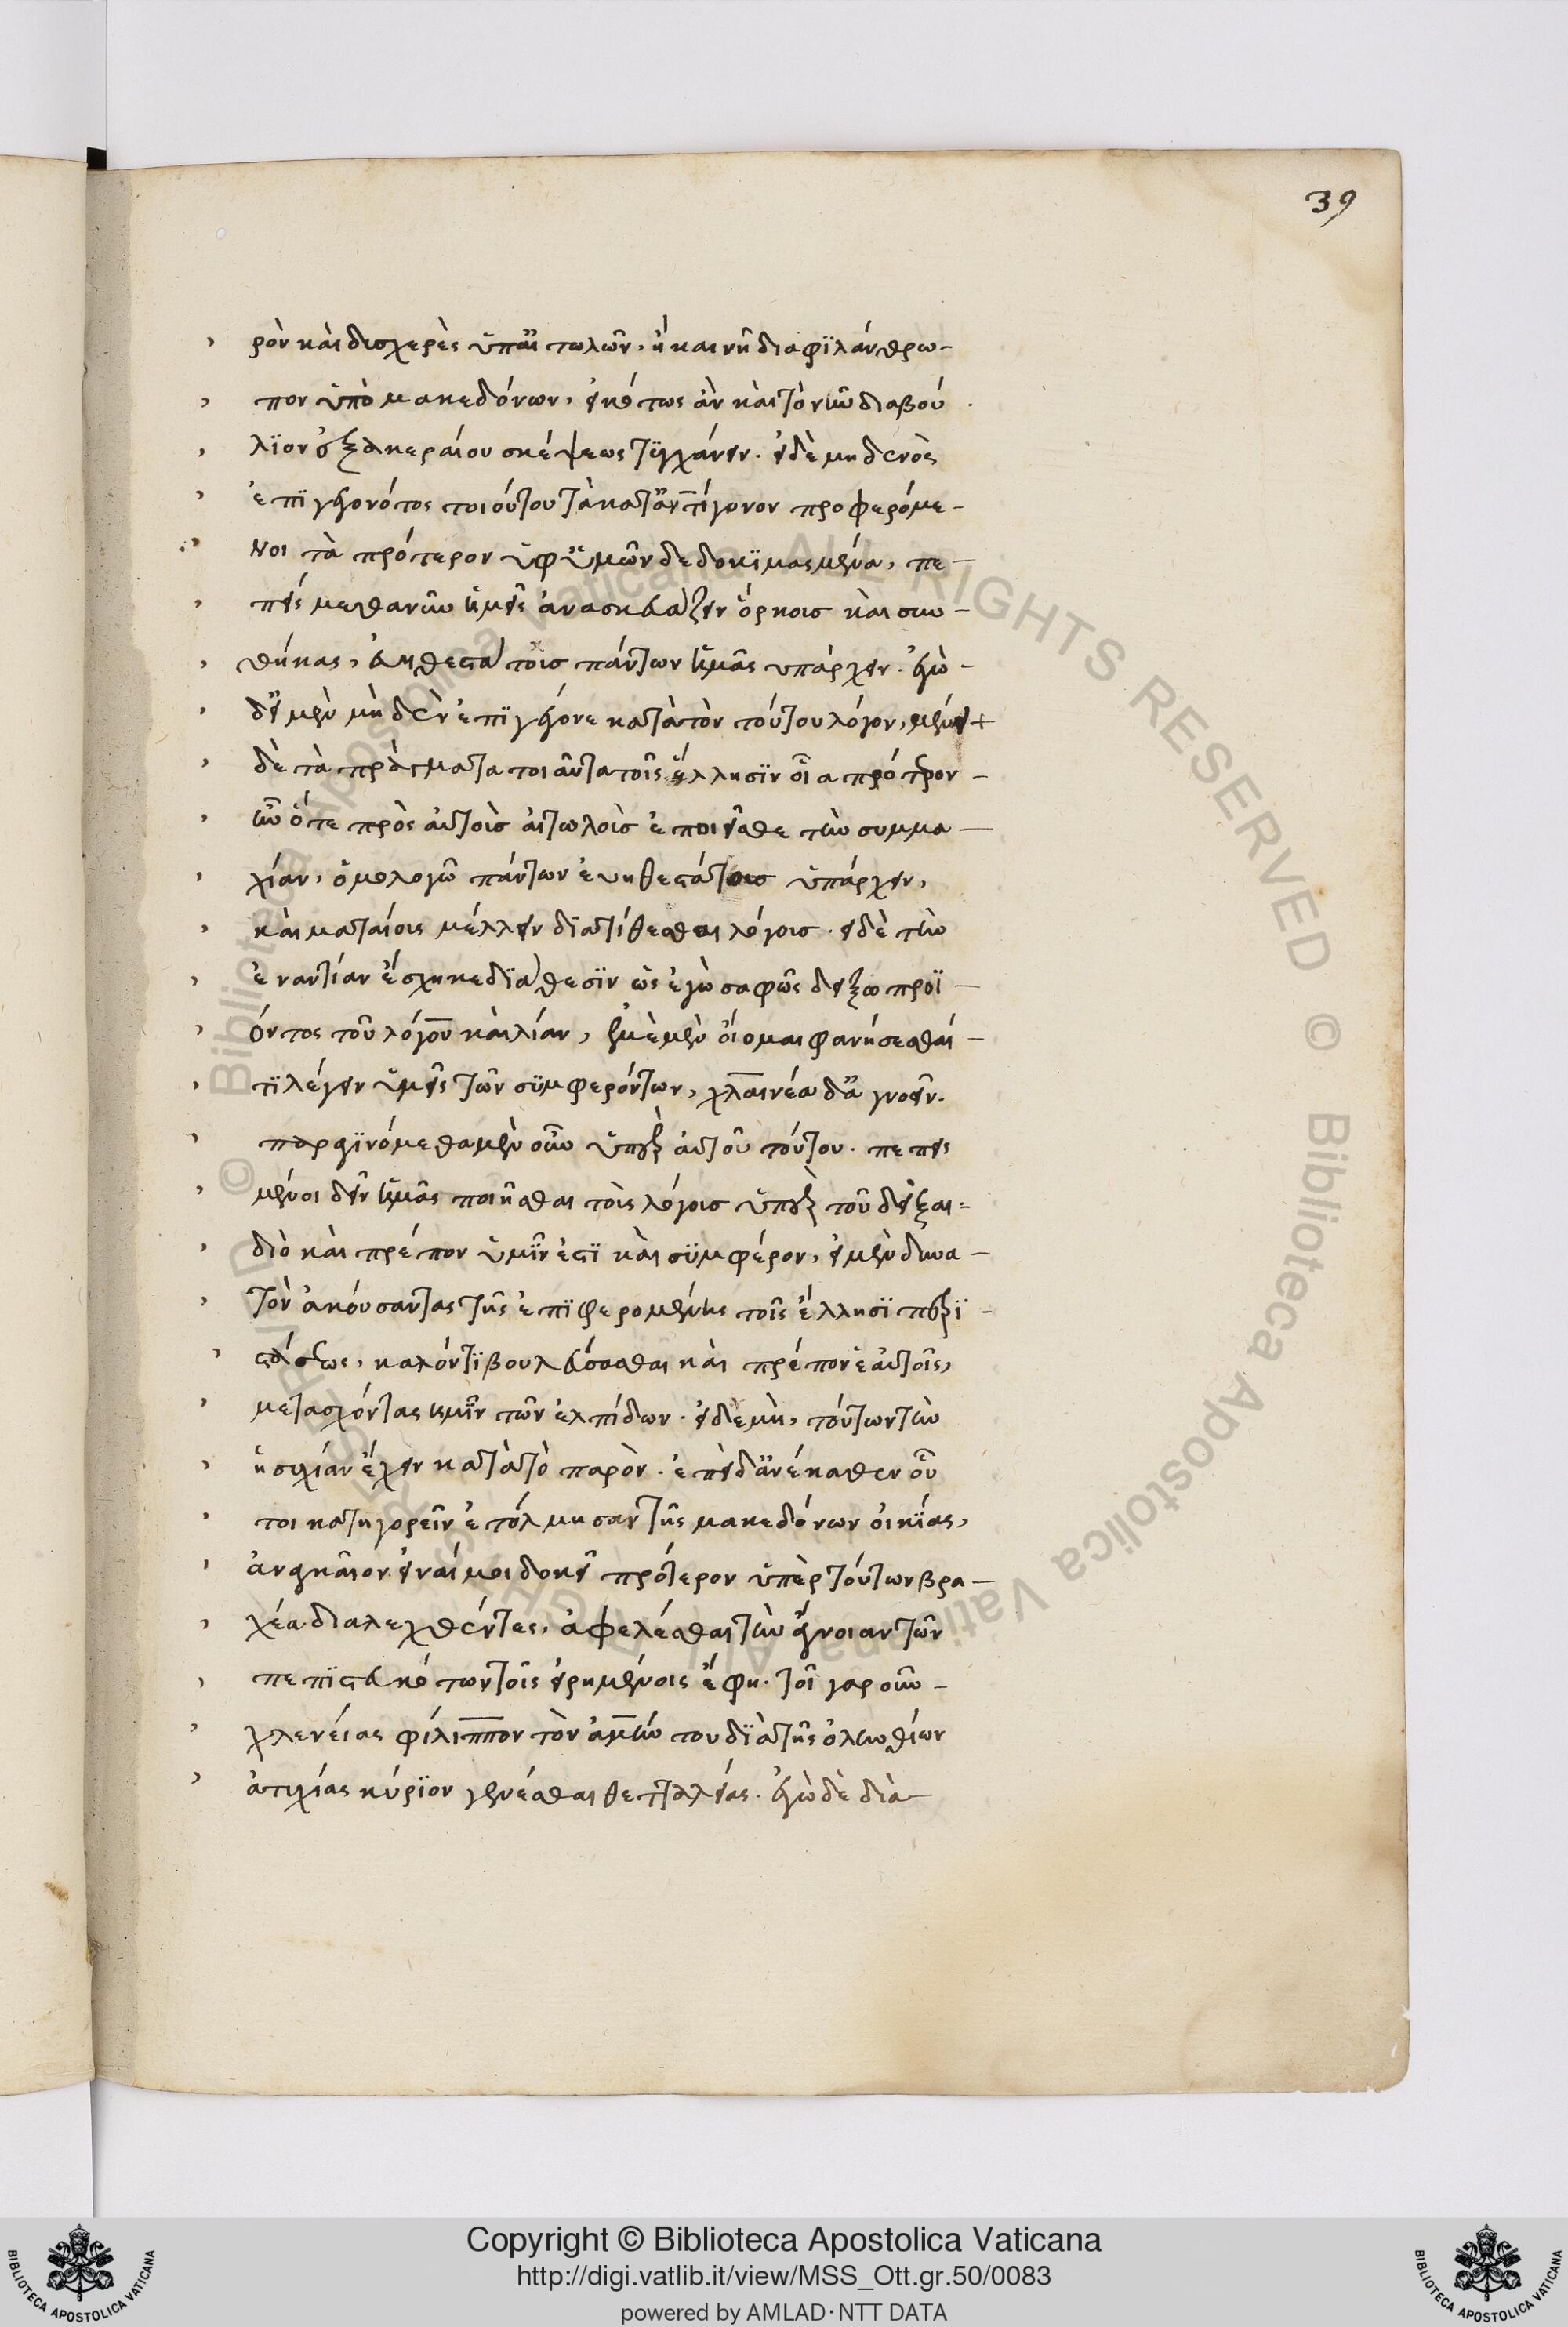 39
ρὸν καὶ δυσχερὲς ὑπ' αἰτωλῶν, ἢ καὶ νῆ δία φϊλάνθρω-
πον ὑπὸ μακεδόνων, εἰκότως ἂν καὶ τὸ νῦν διαβού
λϊον ἐξ ἀκεραίου σκέψεως τϋγχάνειν. εἰ δὲ μηδενὸς
ἐπϊγεγονότος τοιούτου τὰ κατ' ἀντίγονον προφερόμε-
νοι τὰ πρότερον ὑφ' ὑμῶν δεδοκϊμασμένα, πε-
πεισμεθα νῦν ἡμεῖς ἀνασκευάζειν ὅρκους καὶ συν-
θήκας, εὐηθεστάτους πάντων ἡμᾶς υπάρχειν. ἐγὼ-
δ' εἰ μὲν μὴδὲν ἐπϊγέγονε κατὰ τὸν τούτου λόγον, μένει
δὲ τὰ πράγματα τοιαῦτα τοῖς ἕλλησϊν οἷα πρότερον-
ἦν ὅτε πρὸς αὐτοὺς αἰτωλοὺς ἐποιεῖσθε τὴν συμμα-
χίαν, ὁμολογῶ πάντων ἐυηθεστάτους ὑπάρχειν,
καὶ ματαίοις μέλλειν διατίθεσθαι λόγοις. εἰ δὲ τὴν
ἐναντίαν ἔσχηκε διάθεσϊν ὡς ἐγὼ σαφῶς δείξω προϊ-
όντος τοῦ λόγου καὶ λίαν, ἐμὲ μὲν οἴομαι φανήσεσθαί-
τϊ λέγειν ὑμεῖς τῶν σϋμφερόντων, χλαινέα δ' ἀγνοεῖν.
παραγϊνόμεθα μὲν οὖν ὑπὲρ αὐτοῦ τούτου. πεπεισ
μένοι δεῖν ἡμᾶς ποιῆσθαι τοὺς λόγους ὑπὲρ τοῦ δεῖξαι=
διὸ καὶ πρέπον ὑμῖν ἐστϊ καὶ σϋμφέρον, εἰ μὲν δυνα-
τὸν ἀκούσαντας τῆς ἐπϊφερομένης τοῖς ἕλλησϊ περϊ-
στάσεως, καλόν τϊ βουλεύσασθαι καὶ πρέπον ἑαὐτοῖς,
μετασχόντας ἡμῖν τῶν ἐλπίδων. εἰ δὲ μὴ, τούτων τὴν
ἡσυχίαν ἔχειν κατὰ τὸ παρὸν. ἐπεὶ δ' ἀνέκαθεν οὗ
τοι κατηγορεῖν ἐτόλμησαν τῆς μακεδόνων οἰκίας,
ἀναγκαῖον εἰναί μοι δοκεῖ πρότερον ὑπὲρ τούτων βρα-
χέα διαλεχθέντες, ἀφελέσθαι τὴν ἄγνοιαν τῶν
πεπϊστευκότων τοῖς εἰρημένοις ἔφη. τοι γαρ οὖν-
χλενείας φίλιππον τὸν ἀμύντου δϊὰ τῆς ὀλυνθίων
ἀτυχίας κύρϊον γενέσθαι θετταλείας. ἐγὼ δὲ διὰ
Copyright © Biblioteca Apostolica Vaticana
http://digi.vatlib.it/view/MSS_Ott.gr.50/0083
powered by AMLAD·NTT DATA